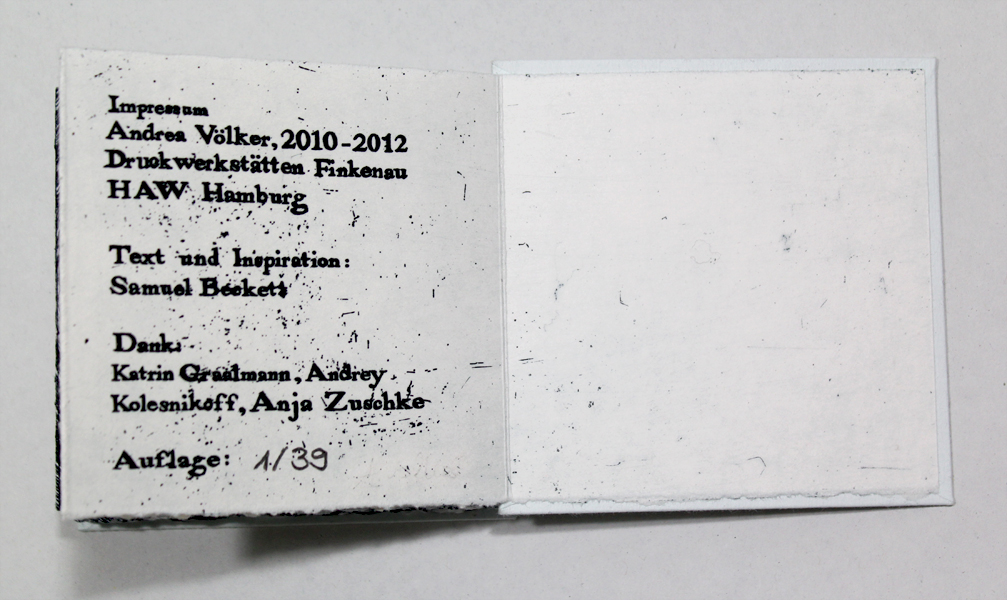 Impressum
Andrea Völker, 2010-2012
Druckwerkstätten Finkenau
HAW Hamburg
Text und Inspiration:
Samuel Beckett
Dank:
Katrin Graalmann, Andrey
Kolesnikoff, Anja Zuschke
Auflage: 1/39